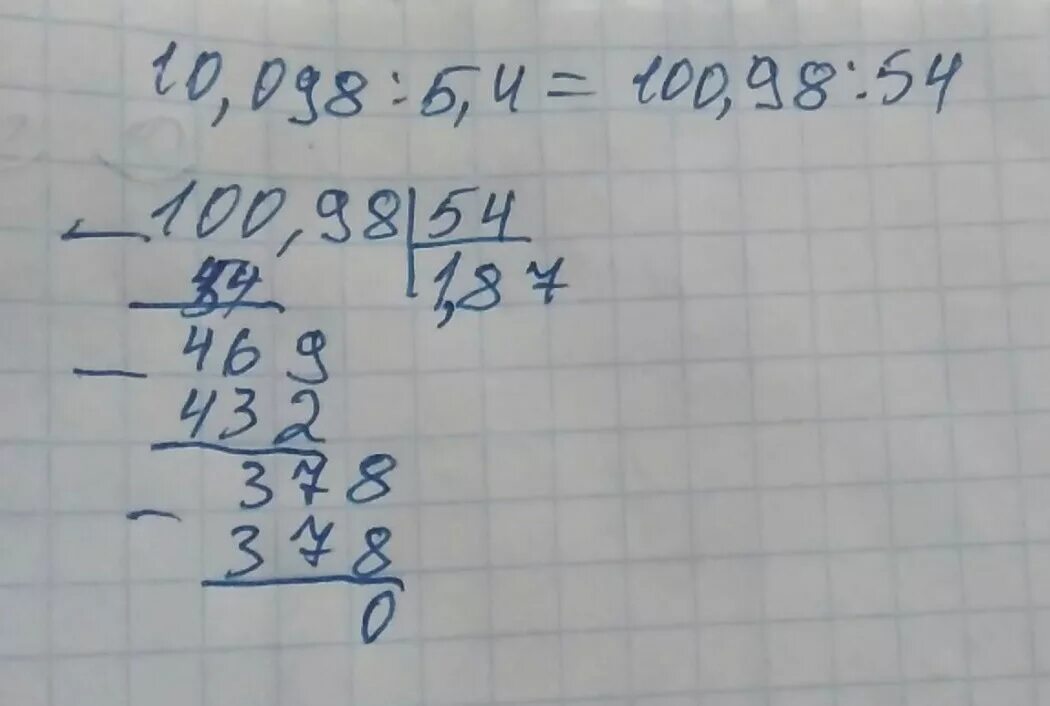 10,098:5,4= 100,98:54
100,98 54
54 1,87
469
432
378
378
0